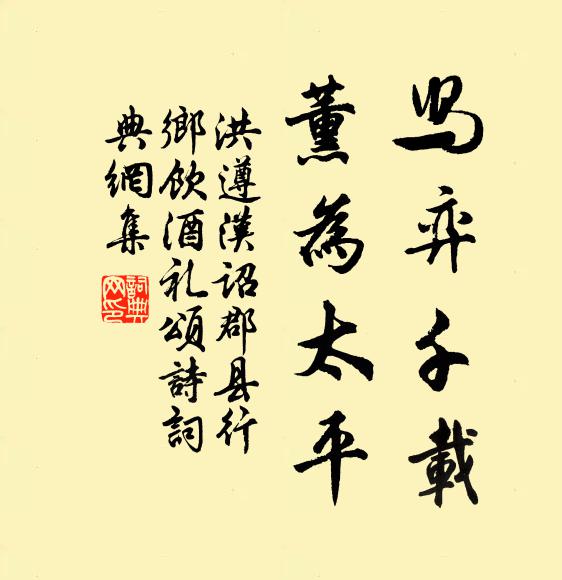 舄弈千載
薰為太平
洪遵漢詔郡县行
鄉飲酒礼頌詩詞
典網集
詞典
网印